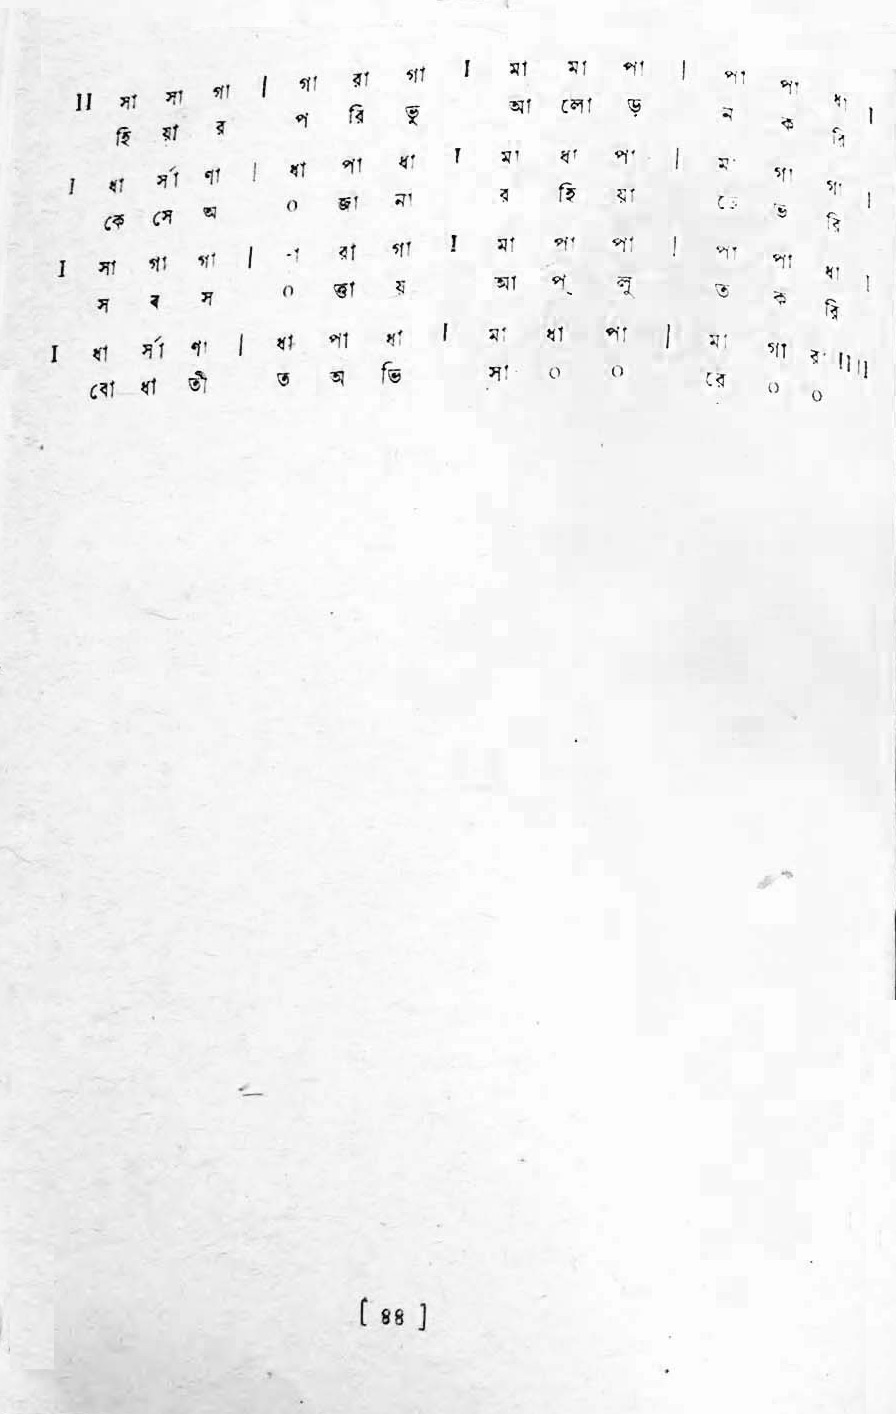 II সা সা গা | গা রা গা I মা মা পা | পা পা ধা |
হি য়া র প রি ভু আ লো ড় ন ক রি
I ধা র্সা ণা | ধা পা ধা I মা ধা পা | মা গা গা |
কে সে অ ০ জা না র হি য়া ভ রি
I সা গা গা | -া রা গা I মা পা পা | পা পা ধা |
স ব স ০ ত্তা য় আ প্ লু ত ক রি
I ধা র্সা ণা | ধা পা ধা I মা ধা পা | মা গা রা II II
বো ধা তী ত অ ভি সা ০ ০ রে ০ ০
[ ৪৪ ]